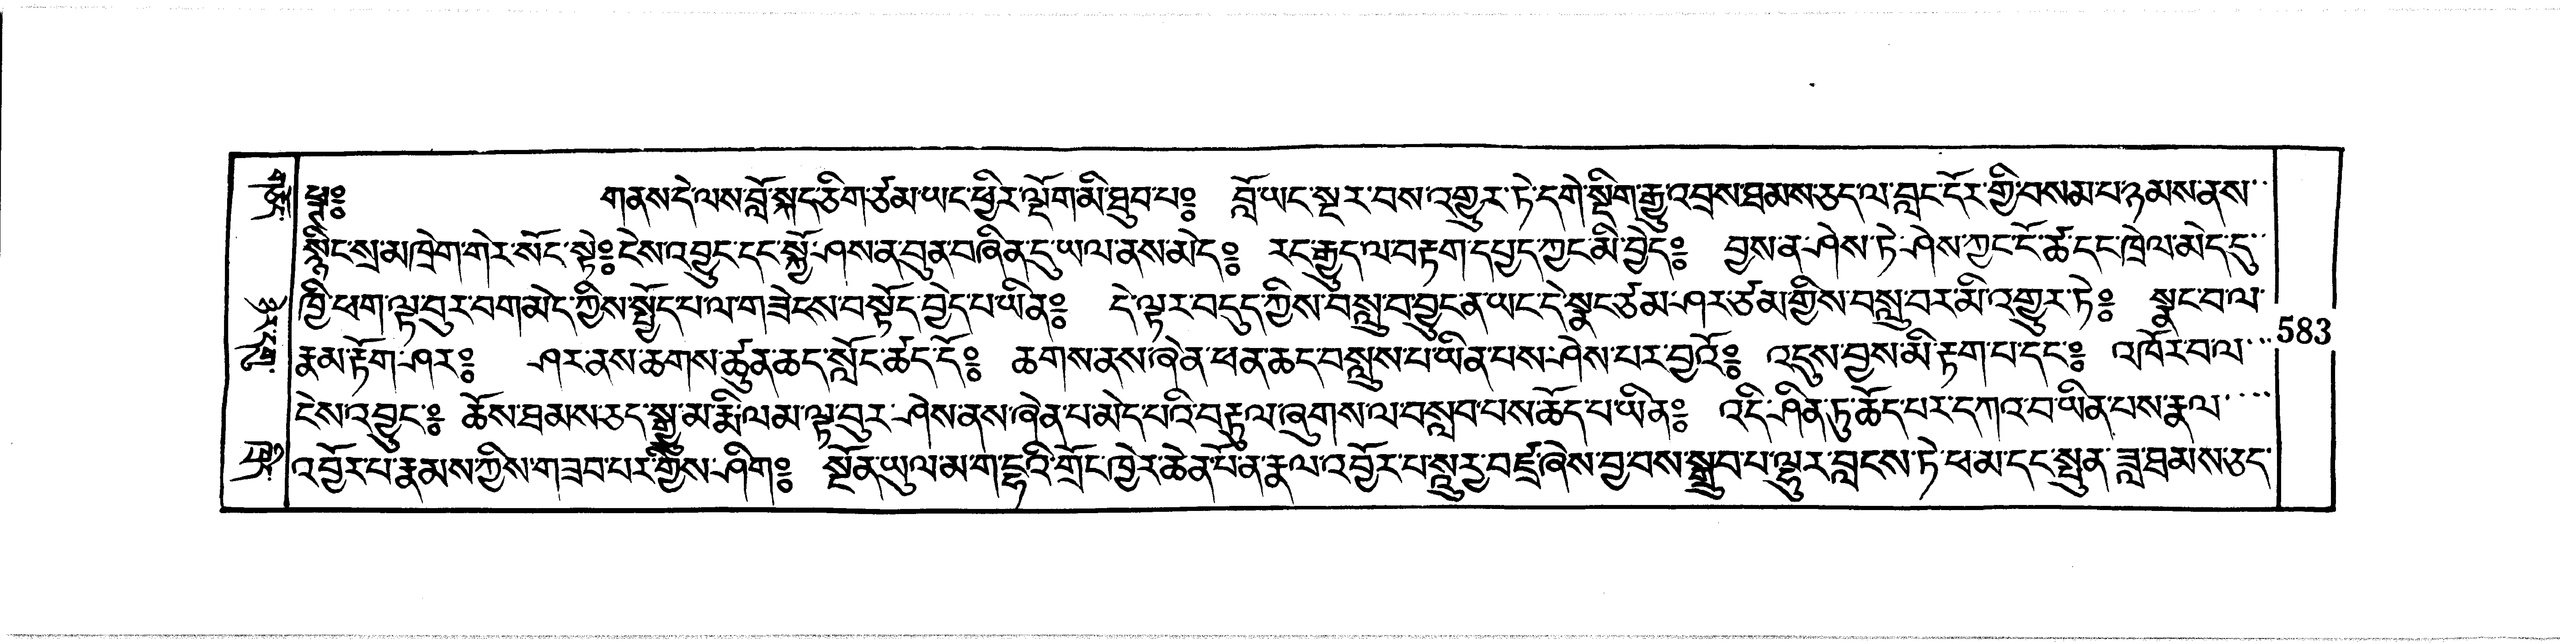 ཕྲ༔ གནས་དེ་ལས་བློ་སྐད་ཅིག་ཙམ་ཡང་ཕྱིར་ལྡོག་མི་ཐུབ་པ༔ བློ་ཡང་སྔར་བས་འགྱུར་ཏེ་དགེ་སྡིག་རྒྱུ་འབྲས་ཐམས་ཅད་ལ་བླང་དོར་གྱི་བསམ་པ་ཉམས་ནས་
སྙིང་སྲ་མ་ཁྲེག་གེར་སོང་སྟེ༔ ངེས་འབྱུང་དང་སྐྱོ་ཤས་ན་བུན་བཞིན་དུ་ཡལ་ནས་མེད༔ རང་རྒྱུད་ལ་བརྟག་དཔྱད་ཀྱང་མི་བྱེད༔ བྱས་ན་ཤེས་ཏེ་ཤེས་ཀྱང་ངོ་ཚ་དང་ཁྲེལ་མེད་དུ་
ཁྱི་ཕག་ལྟ་བུར་བག་མེད་ཀྱིས་སྤྱོད་པ་ལ་གཟེངས་བསྟོད་བྱེད་པ་ཡིན༔ དེ་ལྟར་བདུད་ཀྱིས་བསླུ་བ་བྱུང་ན་ཡང་དེ་སྣང་ཙམ་ཤར་ཙམ་གྱིས་བསླུ་བར་མི་འགྱུར་ཏེ༔ སྣང་བ་ལ་
རྣམ་རྟོག་ཤར༔ ཤར་ནས་ཆགས་ཚུན་ཆད་སློང་ཚད་དོ༔ ཆགས་ནས་ཞེན་ཕན་ཆད་བསླུས་པ་ཡིན་པས་ཤེས་པར་བྱའོ༔ འདུས་བྱས་མི་རྟག་པ་དང་༔ འཁོར་བ་ལ་
ངེས་འབྱུང་༔ ཆོས་ཐམས་ཅད་སྒྱུ་མ་རྨི་ལམ་ལྟ་བུར་ཤེས་ནས་ཞེན་པ་མེད་པའི་བརྟུལ་ཞུགས་ལ་བསླབ་པས་ཆོད་པ་ཡིན༔ འདི་ཤིན་ཏུ་ཆོད་པར་དཀའ་བ་ཡིན་པས་རྣལ་
འབྱོར་པ་རྣམས་ཀྱིས་གཟབ་པར་གྱིས་ཤིག༔ སྔོན་ཡུལ་མ་ག་དྷའི་གྲོང་ཁྱེར་ཆེན་པོ་ན་རྣལ་འབྱོར་པ་སཱུརྱ་བཛྲ་ཞེས་བྱ་བས་སྒྲུབ་པ་ལྷུར་བླངས་ཏེ་ཕམ་དང་སྤུན་ཟླ་ཐམས་ཅད་
583